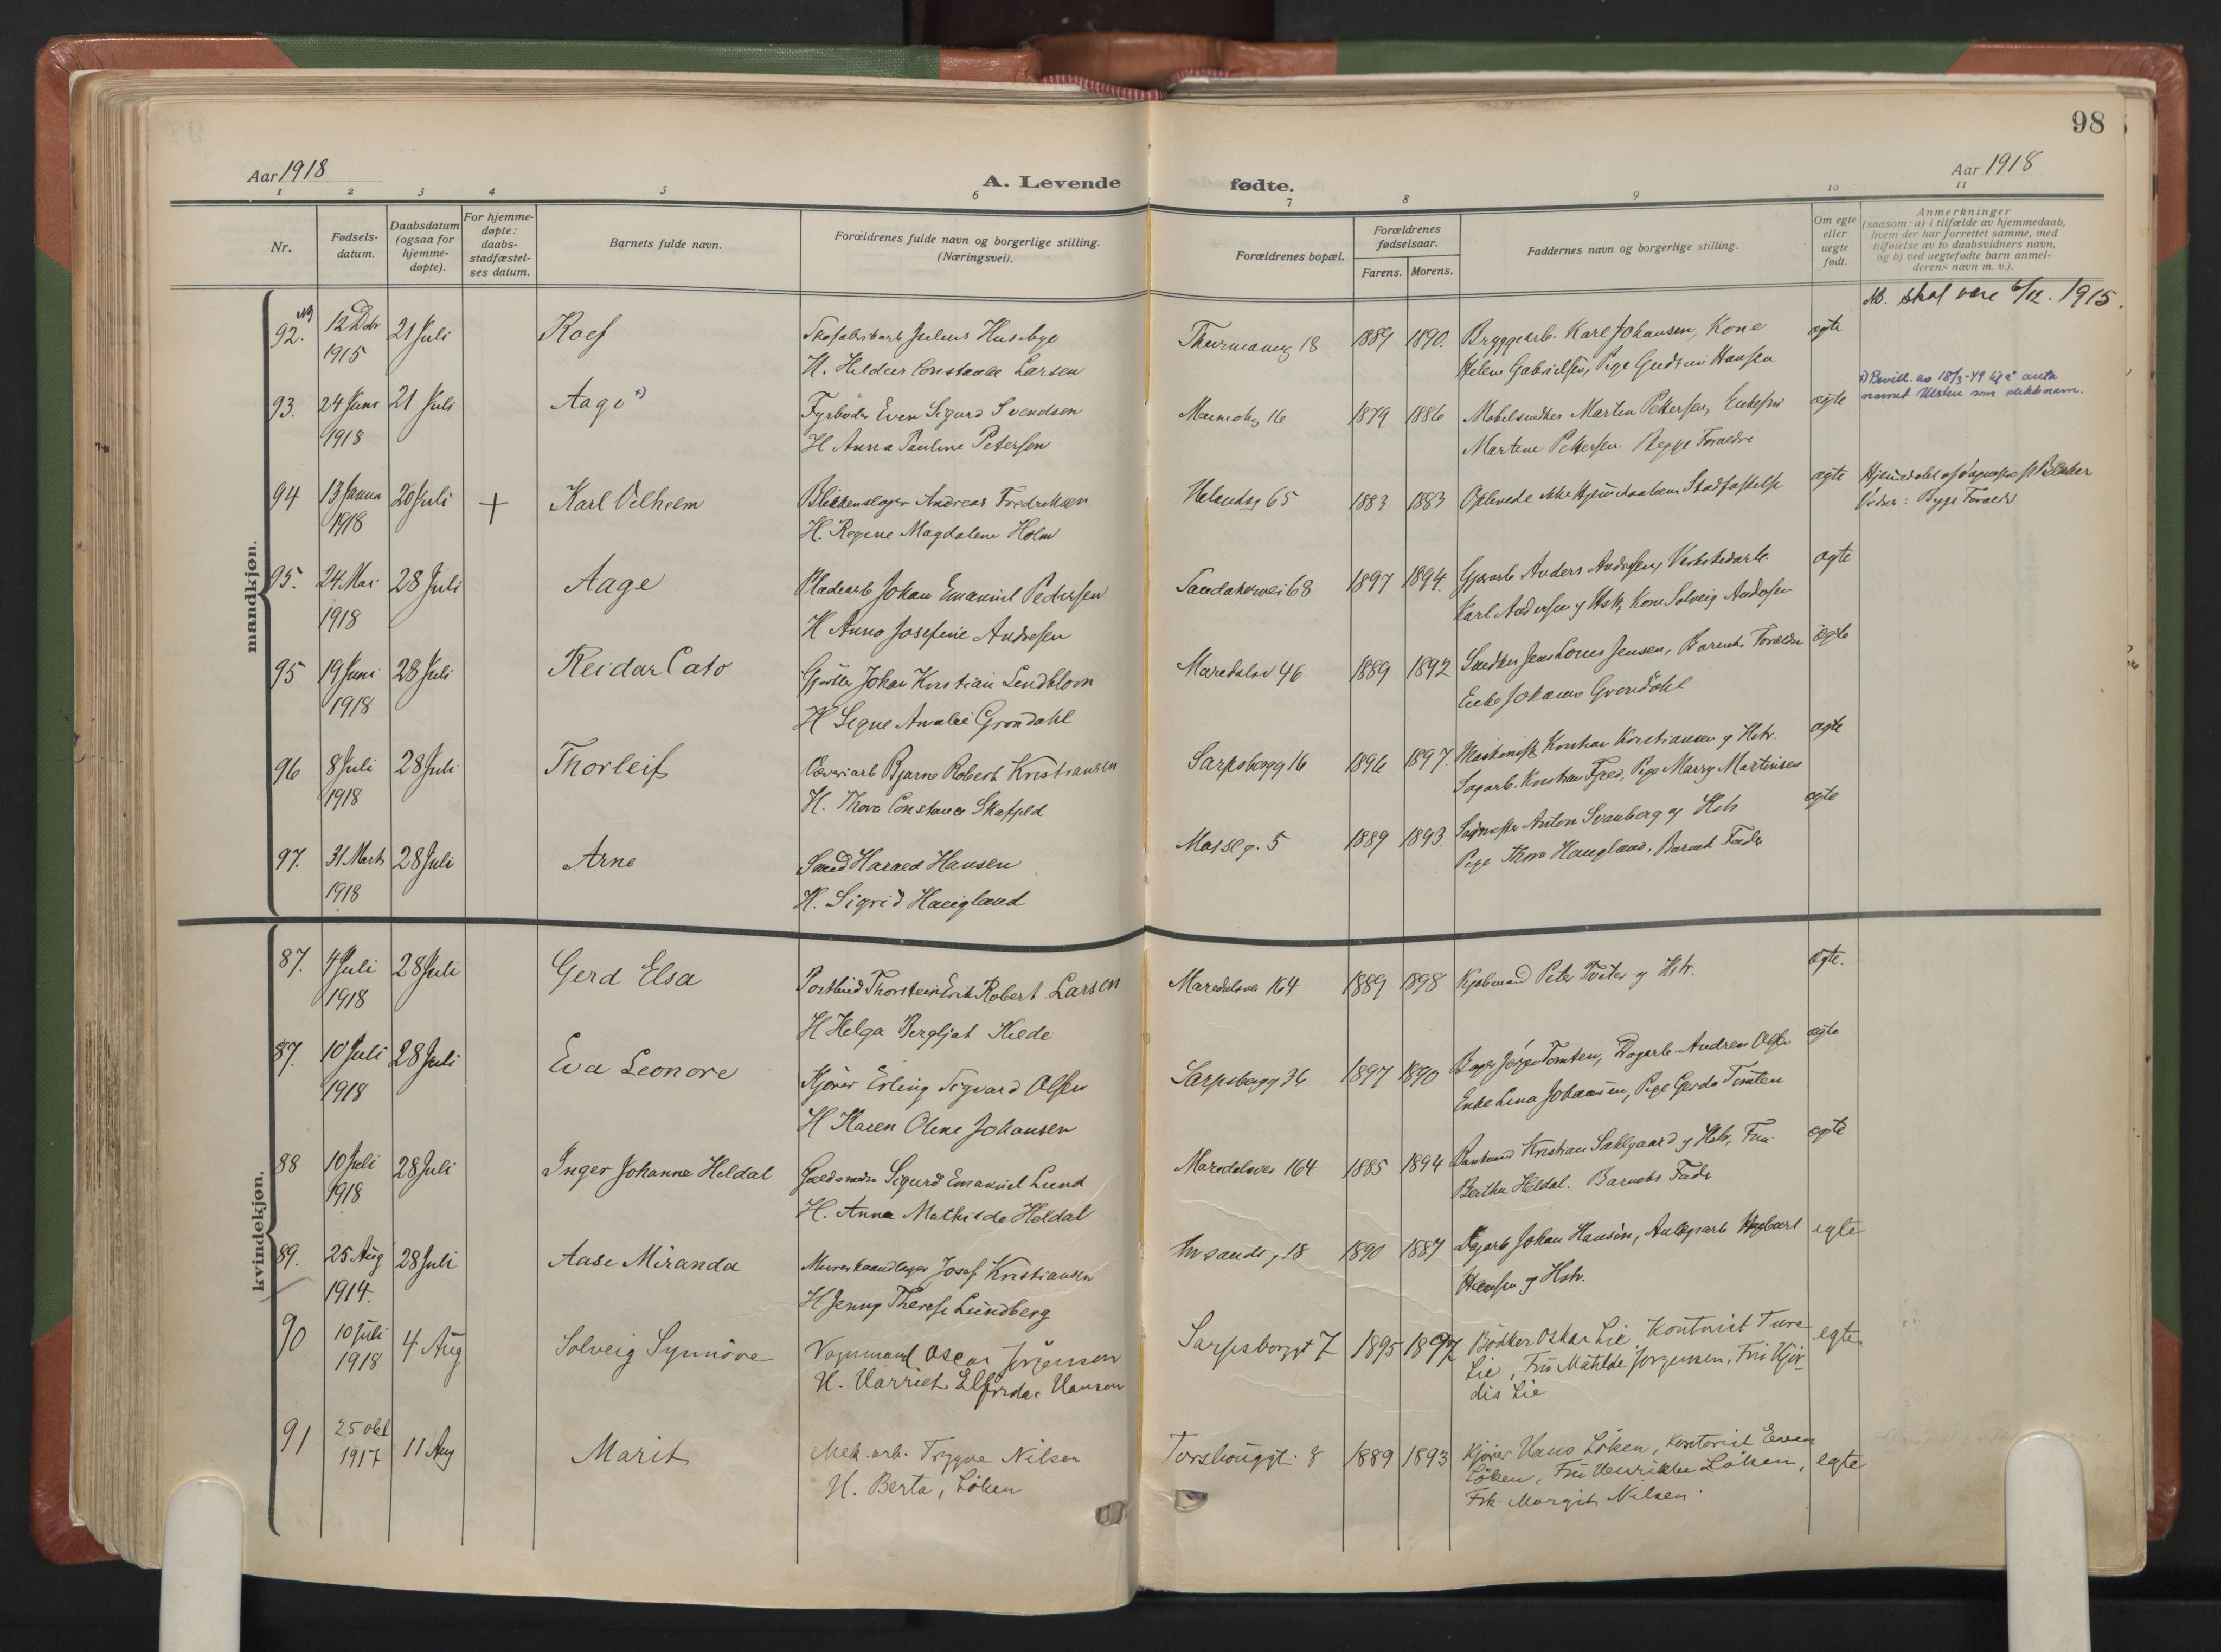 98
Aar 1918
A. Levende fødte.
Aar 1918
1 2 3 4 5 6 7 8 9 10 11
Nr.
Fødsels-
datum.
Daabsdatum
(ogsaa for
hjemme-
døpte).
For hjemme-
døpte:
daabs-
stadfæstel-
ses datum.
Barnets fulde navn.
Forældrenes fulde navn og borgerlige stilling.
(Næringsvei).
Forældrenes bopæl.
Forældrenes
fødselsaar.
Farens. Morens.
Faddernes navn og borgerlige stilling.
Om egte
eller
uegte
født.
Anmerkninger
(saasom: a) i tilfælde av hjemmedaab,
hvem der har forrettet samme, med
tilføielse av to daabsvidners navn,
og b) ved uegtefødte barn anmel-
derens navn m. v.).
mandkjøn.
NB. skal være 6/12. 1915.
92. 12 Dcbr 21 Juli Roef Julius Husebye 18 1889 1890. Bryggearb. Karl Johansen, Kone egte
1915 H. Constance Larsen Helene Gabrielsen, Pige Gudrun Hansen
93. 24 Juni 21 Juli Aage x) Fyrbøder Even Sigurd Svendsen 16 1879 1886 Møbelsnedker Martin Pettersen, Enkefru egte x) Bevill. av 18/3-49 til å anta
navnet Ulsten som slektsnavn.
1918 H Anna Pauline Petersen Martine Pettersen. Begge Forældre
94 13 Januar 20 Juli + Karl Vilhelm Blikkenslager Andreas Fredriksen 65 1883 1883 Oplevede ikke Stadfæstelse egte
1918 H. Regine Magdalene Holm Begge Forældre
95. 24. Mai 28 Juli Aage Pladearb Johan Emanuel Pedersen Sandakervei 68 1897 1894. Anders Andersen, Verkstedarb. egte
1918 H Anna Josefine Andresen Karl Andersen og Hstr, Kone Solveig Andersen
95 19 Juni 28 Juli Reidar Cato Gjørtler Johan Kristian Lindblom Maredalsv 46 1889 1892 Snedker Jensen, Barnets Forældre egte
1918 H Signe Amalie Grøndahl Enke Johanne Grøndahl
96 8 Juli 28 Juli Thorleif Væveriarb Bjarne Robert Kristiansen Sarpsborgg 16 1896 1897. Maskinist Kristian Kristiansen og Hstr. egte
1918 H. Thora Constance Skaffeld Sagarb. Kristian Pige Marry Martinsen
97. 31 Marts 28 Juli Arne Smed Harald Hansen Mosseg. 5 1889 1893. Anton Svanberg og Hstr egte
1918 H. Sigrid Haugland Pige Thora Haugland, Barnets Fader
kvindekjøn.
87. 4 Juli 28 Juli Gerd Elsa Postbud Thorstein Erik Robert Larsen Maredalsvei 164 1889 1898 Kjøbmand Peter Tveter og Hstr. egte.
1918 H Helga Bergljot Kilde
87. 10 Juli 28 Juli Eva Leonore Kjører Erling Sigvard Olsen Sarpsborgg 36 1897 1890 Tomten, Andreas Olsen egte
1918 H Karen Oline Johansen Enke Lina Johansen, Pige Gerda Tomten
88 10 Juli 28 Juli Inger Johanne Heldal Guldsmed Sigurd Emanuel Lund Maredalsvei 164 1885 1894 Kristian Sahlgaard og Hstr, Fru egte
1918 H. Anna Mathilde Heldal Bertha Heldal. Barnets Fader
89. 25 Aug 28 Juli Aase Miranda Murerhaandlager Josef Kristiansen 18 1890 1887 Johan Hansen, egte
1914. H Jenny Therese Lundberg Hansen og Hstr.
90 10 Juli 4 Aug Solveig Synnöve Vognmand Oscar Jørgensen Sarpsborggt 7 1895 1897 Bödker Oskar Lie, Kontorist Ture egte
1918 H. Harriet Elfrida Hansen Lie, Fru Matilde Jørgensen, Fru Hjør-
dis Lie
91 25 okt 11 Aug Marit Mek. arb. Trygve Nilsen Torshouggt. 8 1889 1893 Kjører Hans Löken, Kontorist Even egte
1917 H. Berta, Löken Löken, Fru Henrikke Löken,
Frk. Margit Nilsen.